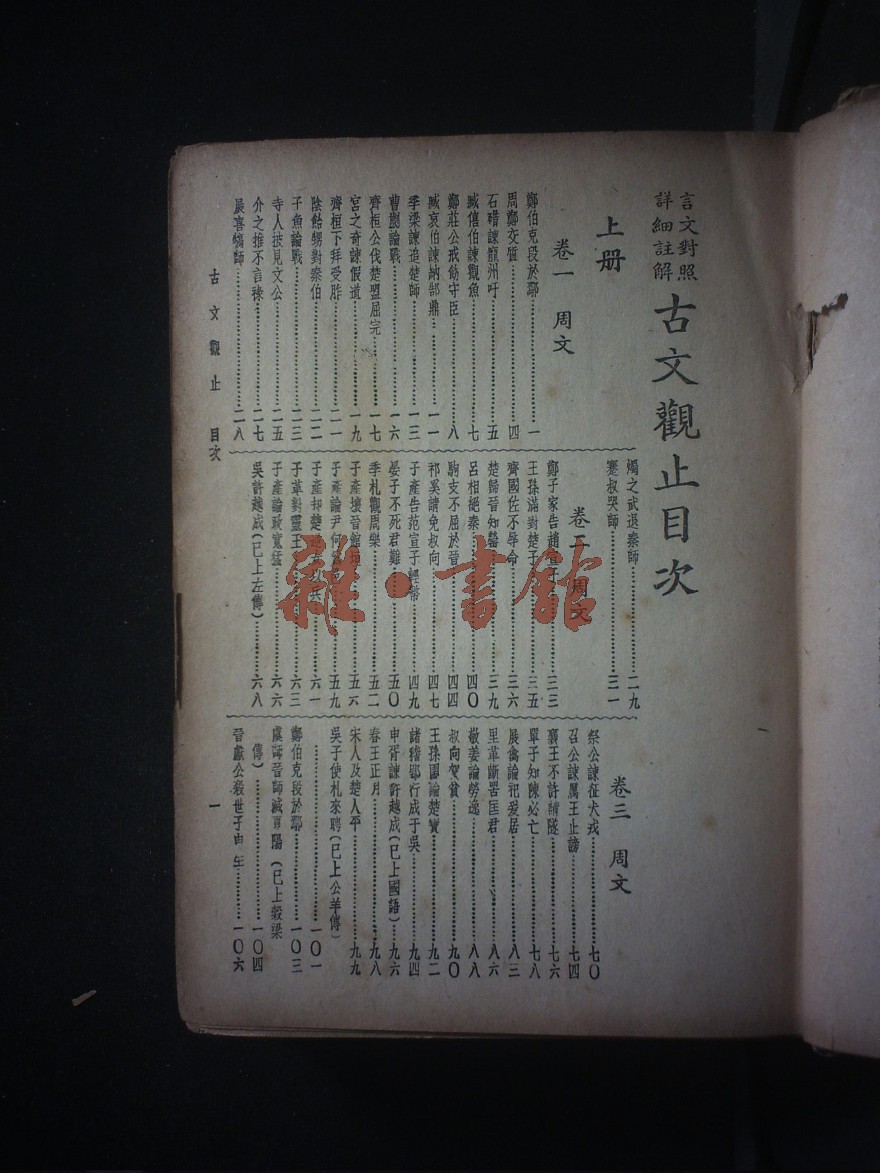 言文對照
詳細註解
古文觀止目次
上册
卷一　周文
鄭伯克段於鄢…………一
周鄭交質…………四
石碏諫寵州吁…………五
臧僖伯諫觀魚…………七
鄭莊公戒飭守臣…………八
臧哀伯諫納郜鼎…………一一
季梁諫追楚師…………一三
曹劌論戰…………一六
齊桓公伐楚盟屈完…………一七
宮之奇諫假道…………一九
齊桓下拜受胙…………二一
陰飴甥對秦伯…………二二
子魚論戰…………二三
寺人披見文公…………二五
介之推不言祿…………二七
展喜犒師…………二八
燭之武退秦師…………二九
蹇叔哭師…………三一
卷二　周文
鄭子家告趙宣子…………三三
王孫滿對楚子…………三五
齊國佐不辱命…………三六
楚歸晉知罃…………三九
呂相絕秦…………四〇
駒支不屈於晉…………四四
祁奚請免叔向…………四七
子產告范宣子輕幣…………四九
晏子不死君難…………五〇
季札觀周樂…………五二
子產壞晉館垣…………五六
子產論尹何…………五九
子產却楚…………六一
子革對靈王…………六三
子產論政寬猛…………六六
吳許越成（已上左傳）…………六八
卷三　周文
祭公諫征犬戎…………七〇
召公諫厲王止謗…………七四
襄王不許請隧…………七六
單子知陳必亡…………七八
展禽論祀爰居…………八三
里革斷罟匡君…………八六
敬姜論勞逸…………八八
叔向賀貧…………九〇
王孫圉論楚寶…………九二
諸稽郢行成于吳…………九四
申胥諫許越成（已上國語）…………九六
春王正月…………九八
宋人及楚人平…………九九
吳子使札來聘（已上公羊傳）
…………一〇一
鄭伯克段於鄢…………一〇三
虞師晉師滅夏陽（已上穀梁
傳）…………一〇四
晉獻公殺世子申生…………一〇六
古文觀止　目次　一
雜·書館